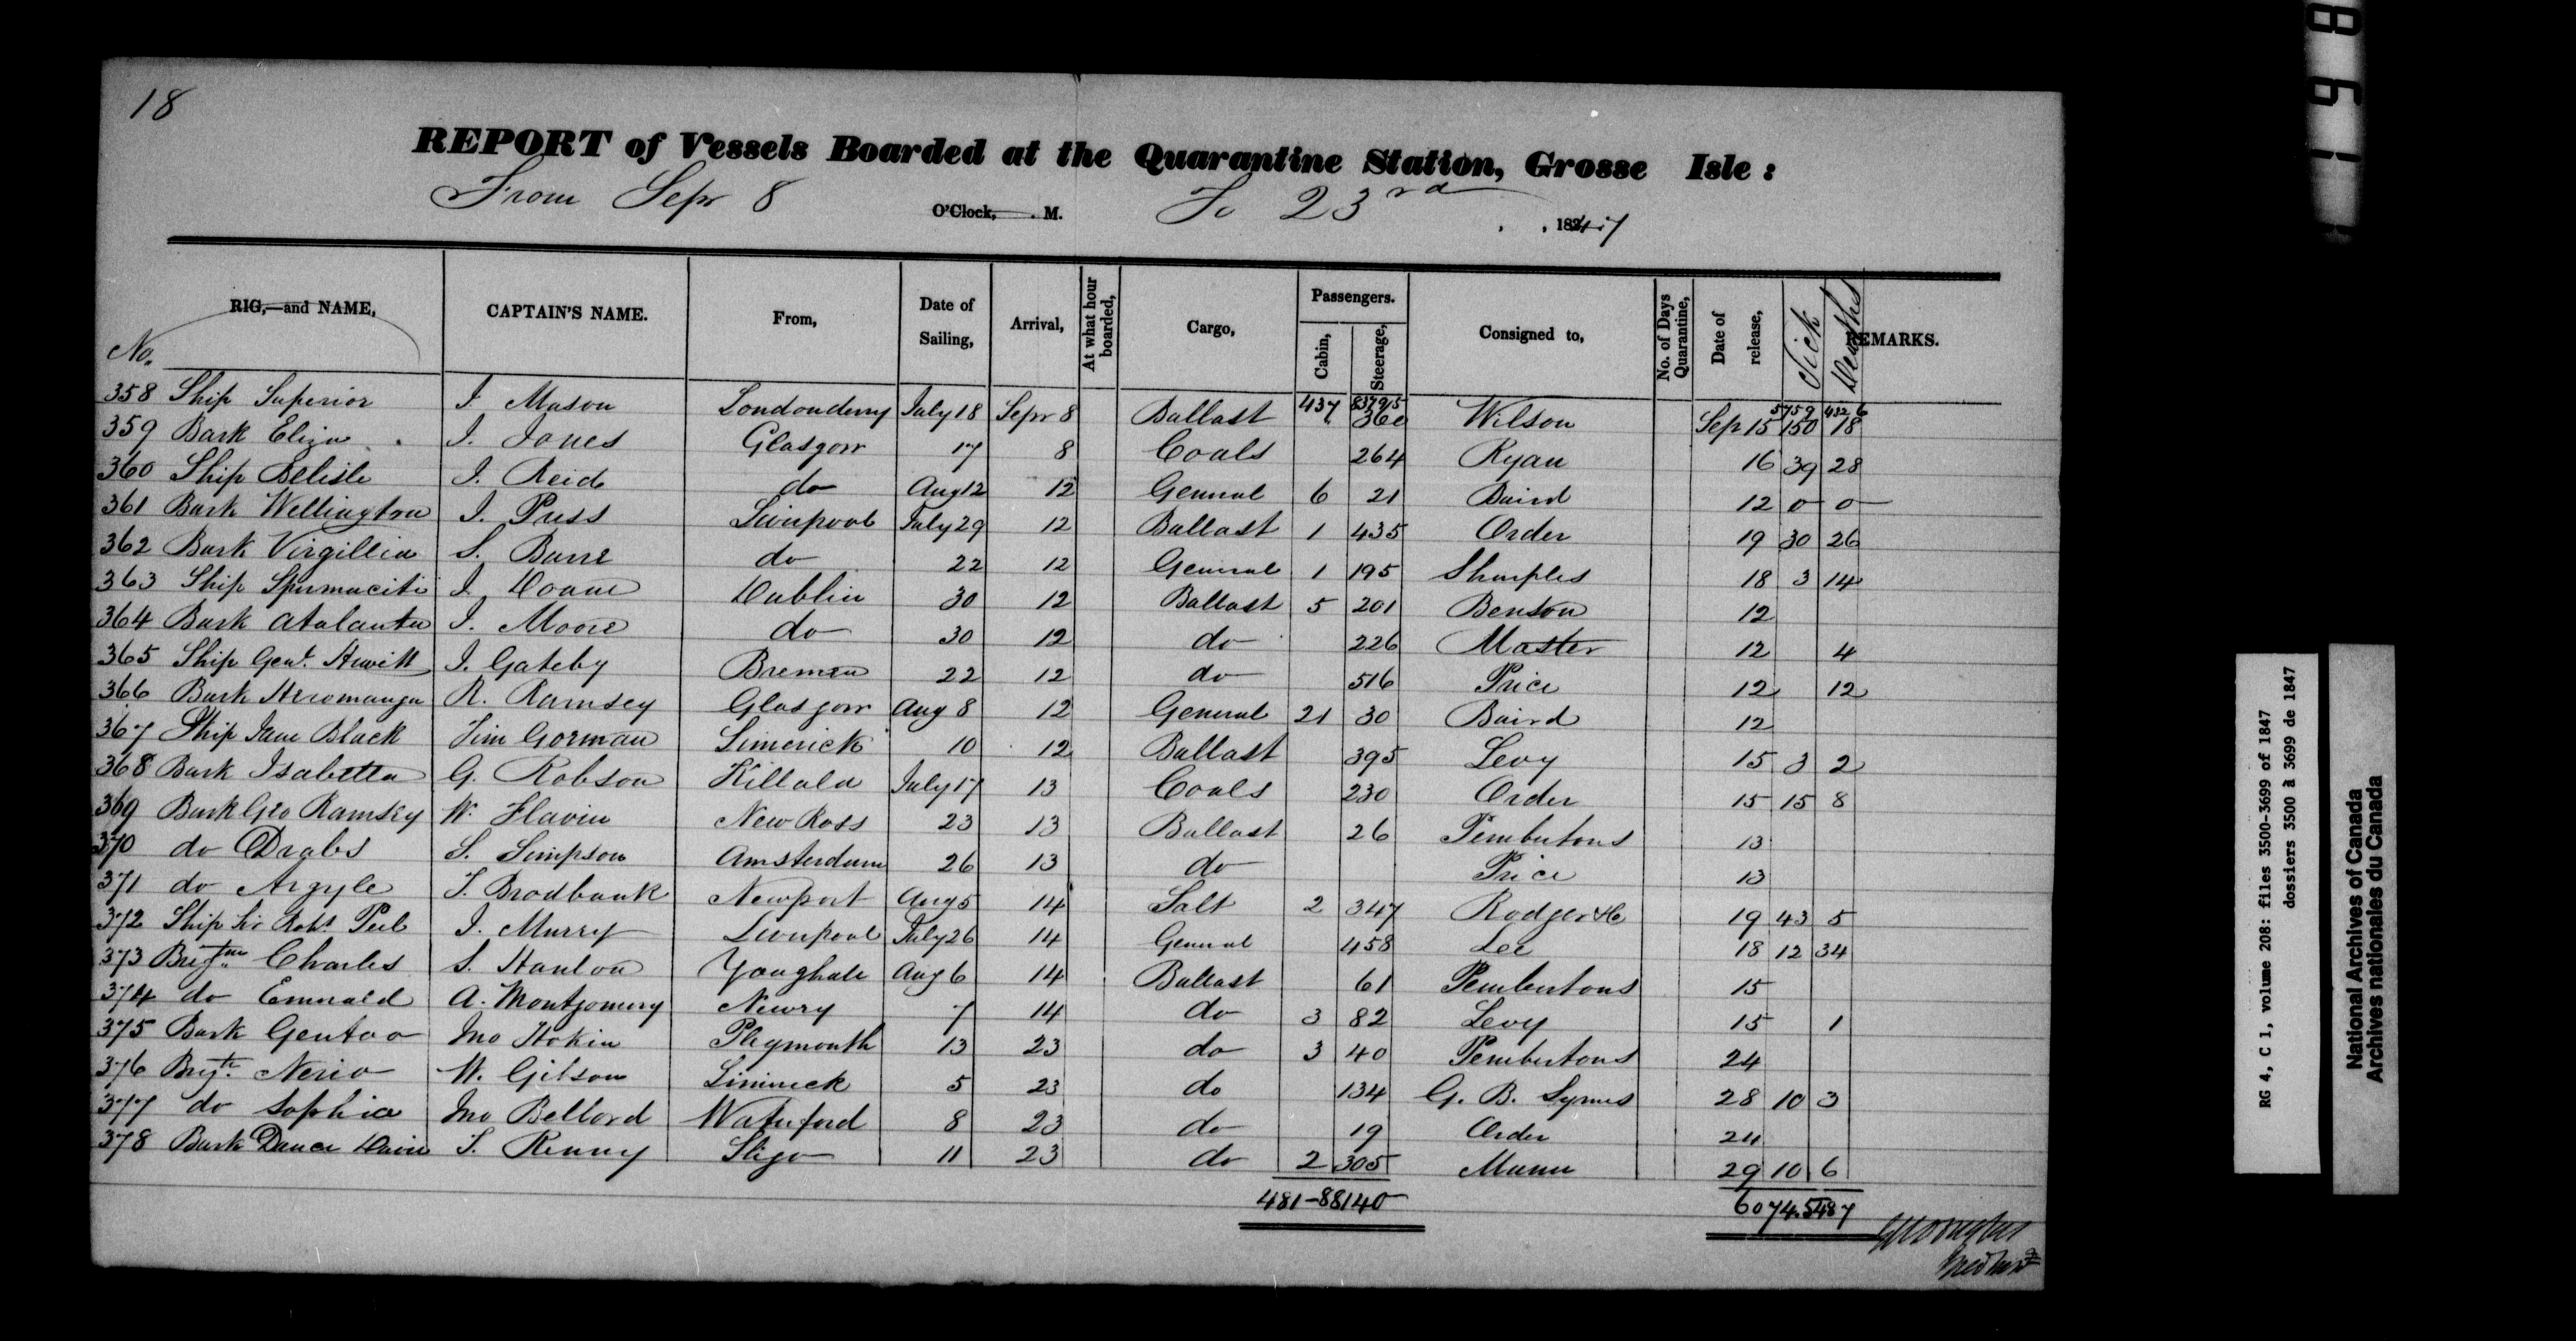 18
REPORT of Vessels Boarded at the Quarantine Station, Grosse Isle :
From Sepr 8 O'Clock, M. To 23rd , , 1847
No. RIG,—and NAME, CAPTAIN'S NAME. From, Date of Sailing, Arrival, At what hour boarded, Cargo, Passengers. Cabin, Steerage, Consigned to, No. of Days Quarantine, Date of release, Sick Deaths REMARKS.
437 83795 5759
358 Ship Superior J Mason Londonderry July 18 Sepr 8 Ballast 360 Wilson Sep 15 150 18
359 Bark Eliza J. Jones Glasgow 17 8 Coals 264 Ryan 16 39 28
360 Ship Belisle J. Reid do Aug 12 12 General 6 21 Baird 12 0 0
361 Bark Wellington J. Press Liverpool July 29 12 Ballast 1 435 Order 19 30 26
362 Bark Virgillia S. do 22 12 General 1 195 Sharples 18 3 14
363 Ship Spermaciti J. Doane Dublin 30 12 Ballast 5 201 Benson 12
364 Bark Atalanta J. Moore do 30 12 do 226 Master 12 4
365 Ship Genl. Hewitt J. Gateby Bremen 22 12 do 516 Price 12 12
366 Bark Herromanga R. Ramsey Glasgow Aug 8 12 General 21 30 Baird 12
367 Ship Jane Black Tim Gorman Limerick 10 12 Ballast 395 Levy 15 3 2
368 Bark Isabella G. Robson Killala July 17 13 Coals 230 Order 15 15 8
369 Bark Geo Ramsey W. Flavin New Ross 23 13 Ballast 26 Pembertons 13
370 do S. Simpson Amsterdam 26 13 do Price 13
371 do Argyle T. Brodbank Newport Aug 5 14 Salt 2 347 Rodger &c 19 43 5
372 Ship Sir Robt. Peel J. Murry Liverpool July 26 14 General 458 Lee 18 12 34
373 Brigtne Charles S. Hanlon Youghale Aug 6 14 Ballast 61 Pembertons 15
374 do Emerald A. Montgomery Newry 7 14 do 3 82 Levy 15 1
375 Bark Gentoo Jno Hokin Plymouth 13 23 do 3 40 Pembertons 24
376 Brigte. Nerio W. Gibson Limerick 5 23 do 134 G. B. Symes 28 10 3
377 do Sophia Jno Bellord Waterford 8 23 do 19 Order 24
378 Bark S. Kenny Sligo 11 23 do 2 305 Munn 29 10 6
481-88140 6074.5487
RG 4, C 1, volume 208: files 3500-3699 of 1847
dossiers 3500 à 3699 de 1847
National Archives of Canada
Archives nationales du Canada